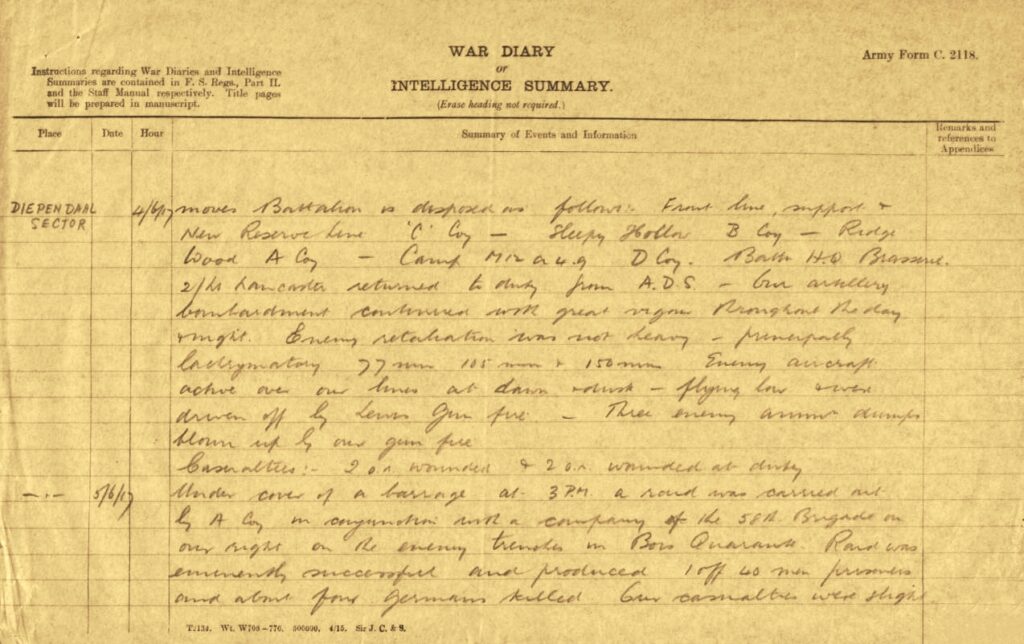 WAR DIARY
or
INTELLIGENCE SUMMARY.
(Erase heading not required.)
Army Form C. 2118.
Instructions regarding War Diaries and Intelligence
Summaries are contained in F. S. Regs., Part II.
and the Staff Manual respectively. Title pages
will be prepared in manuscript.
Place Date Hour Summary of Events and Information Remarks and
references to
Appendices
DIEPENDAAL
SECTOR
4/6/17 moves Battalion is disposed as follows:- Front line, support &
New Reserve Line 'C' Coy — Sleepy Hollow B Coy — Ridge
Wood A Coy — Camp M12 a 4.9 D Coy. Battn H.Q Brasserie.
2/Lt Lancaster returned to duty from A.D.S — Our artillery
bombardment continued with great vigour throughout the day
& night. Enemy retaliation was not heavy — principally
lachrymatory 77 mm 105 mm & 150 mm Enemy aircraft
active over our lines at dawn & dusk — flying low & were
driven off by Lewis Gun fire — Three enemy ammn dumps
blown up by our gun fire
Casualties:- 2 o.r. wounded & 2 o.r. wounded at duty
—.— 5/6/17 Under cover of a barrage at 3 P.M. a raid was carried out
by A Coy in conjunction with a company of the 58th Brigade on
our right on the enemy trenches in Bois Quarante. Raid was
eminently successful and produced 1 off 40 men prisoners
and about four Germans killed Our casualties were slight
T2134. Wt. W708—776. 500000. 4/15. Sir J. C. & S.